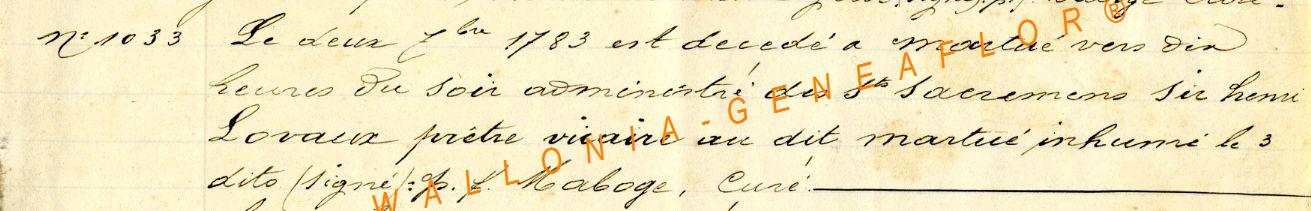 n° 1033 Le deux 7bre 1783 est decedé a martué vers dix
heures du soir administré des Sts Sacremens Sir henri
Lovaux prêtre vicaire au dit martué inhumé le 3
dito (signé): p. f. Maboge, Curé.
WALLONIA-GENEAFLOR®